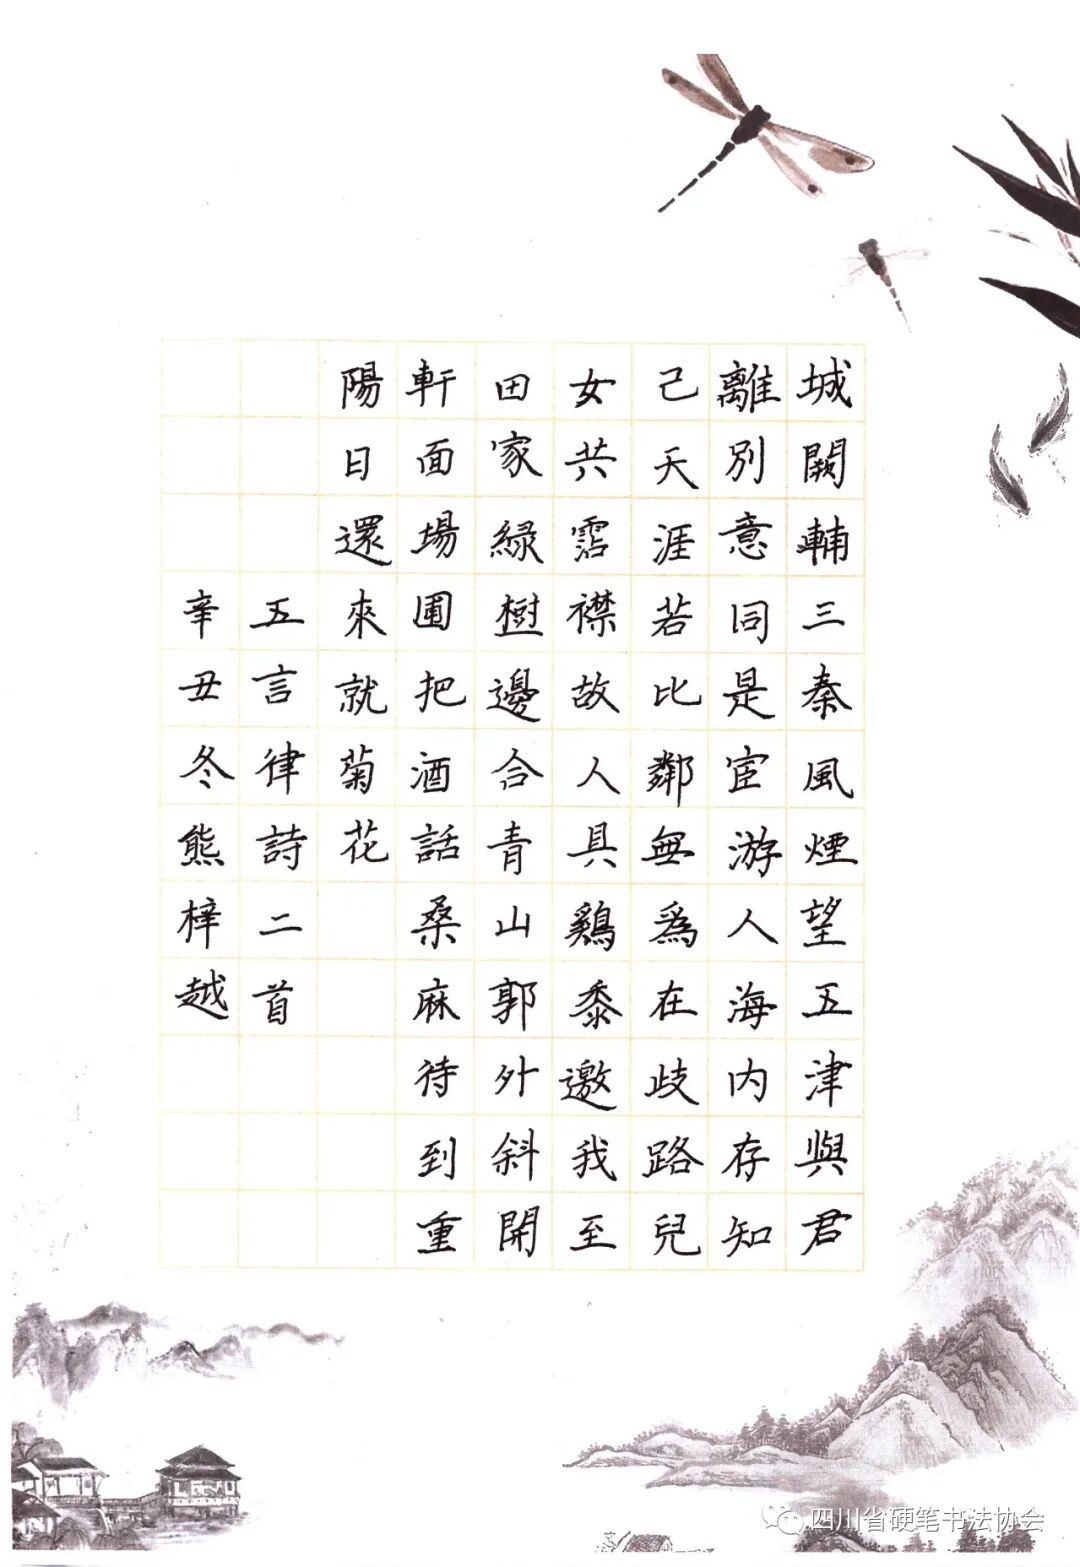 城闕輔三秦風煙望五津與君
離別意同是宦游人海内存知
己天涯若比鄰無爲在歧路兒
女共霑襟故人具鷄黍邀我至
田家緑樹邊合青山郭外斜開
軒面場圃把酒話桑麻待到重
陽日還來就菊花
五言律詩二首
辛丑冬熊梓越
四川省硬笔书法协会